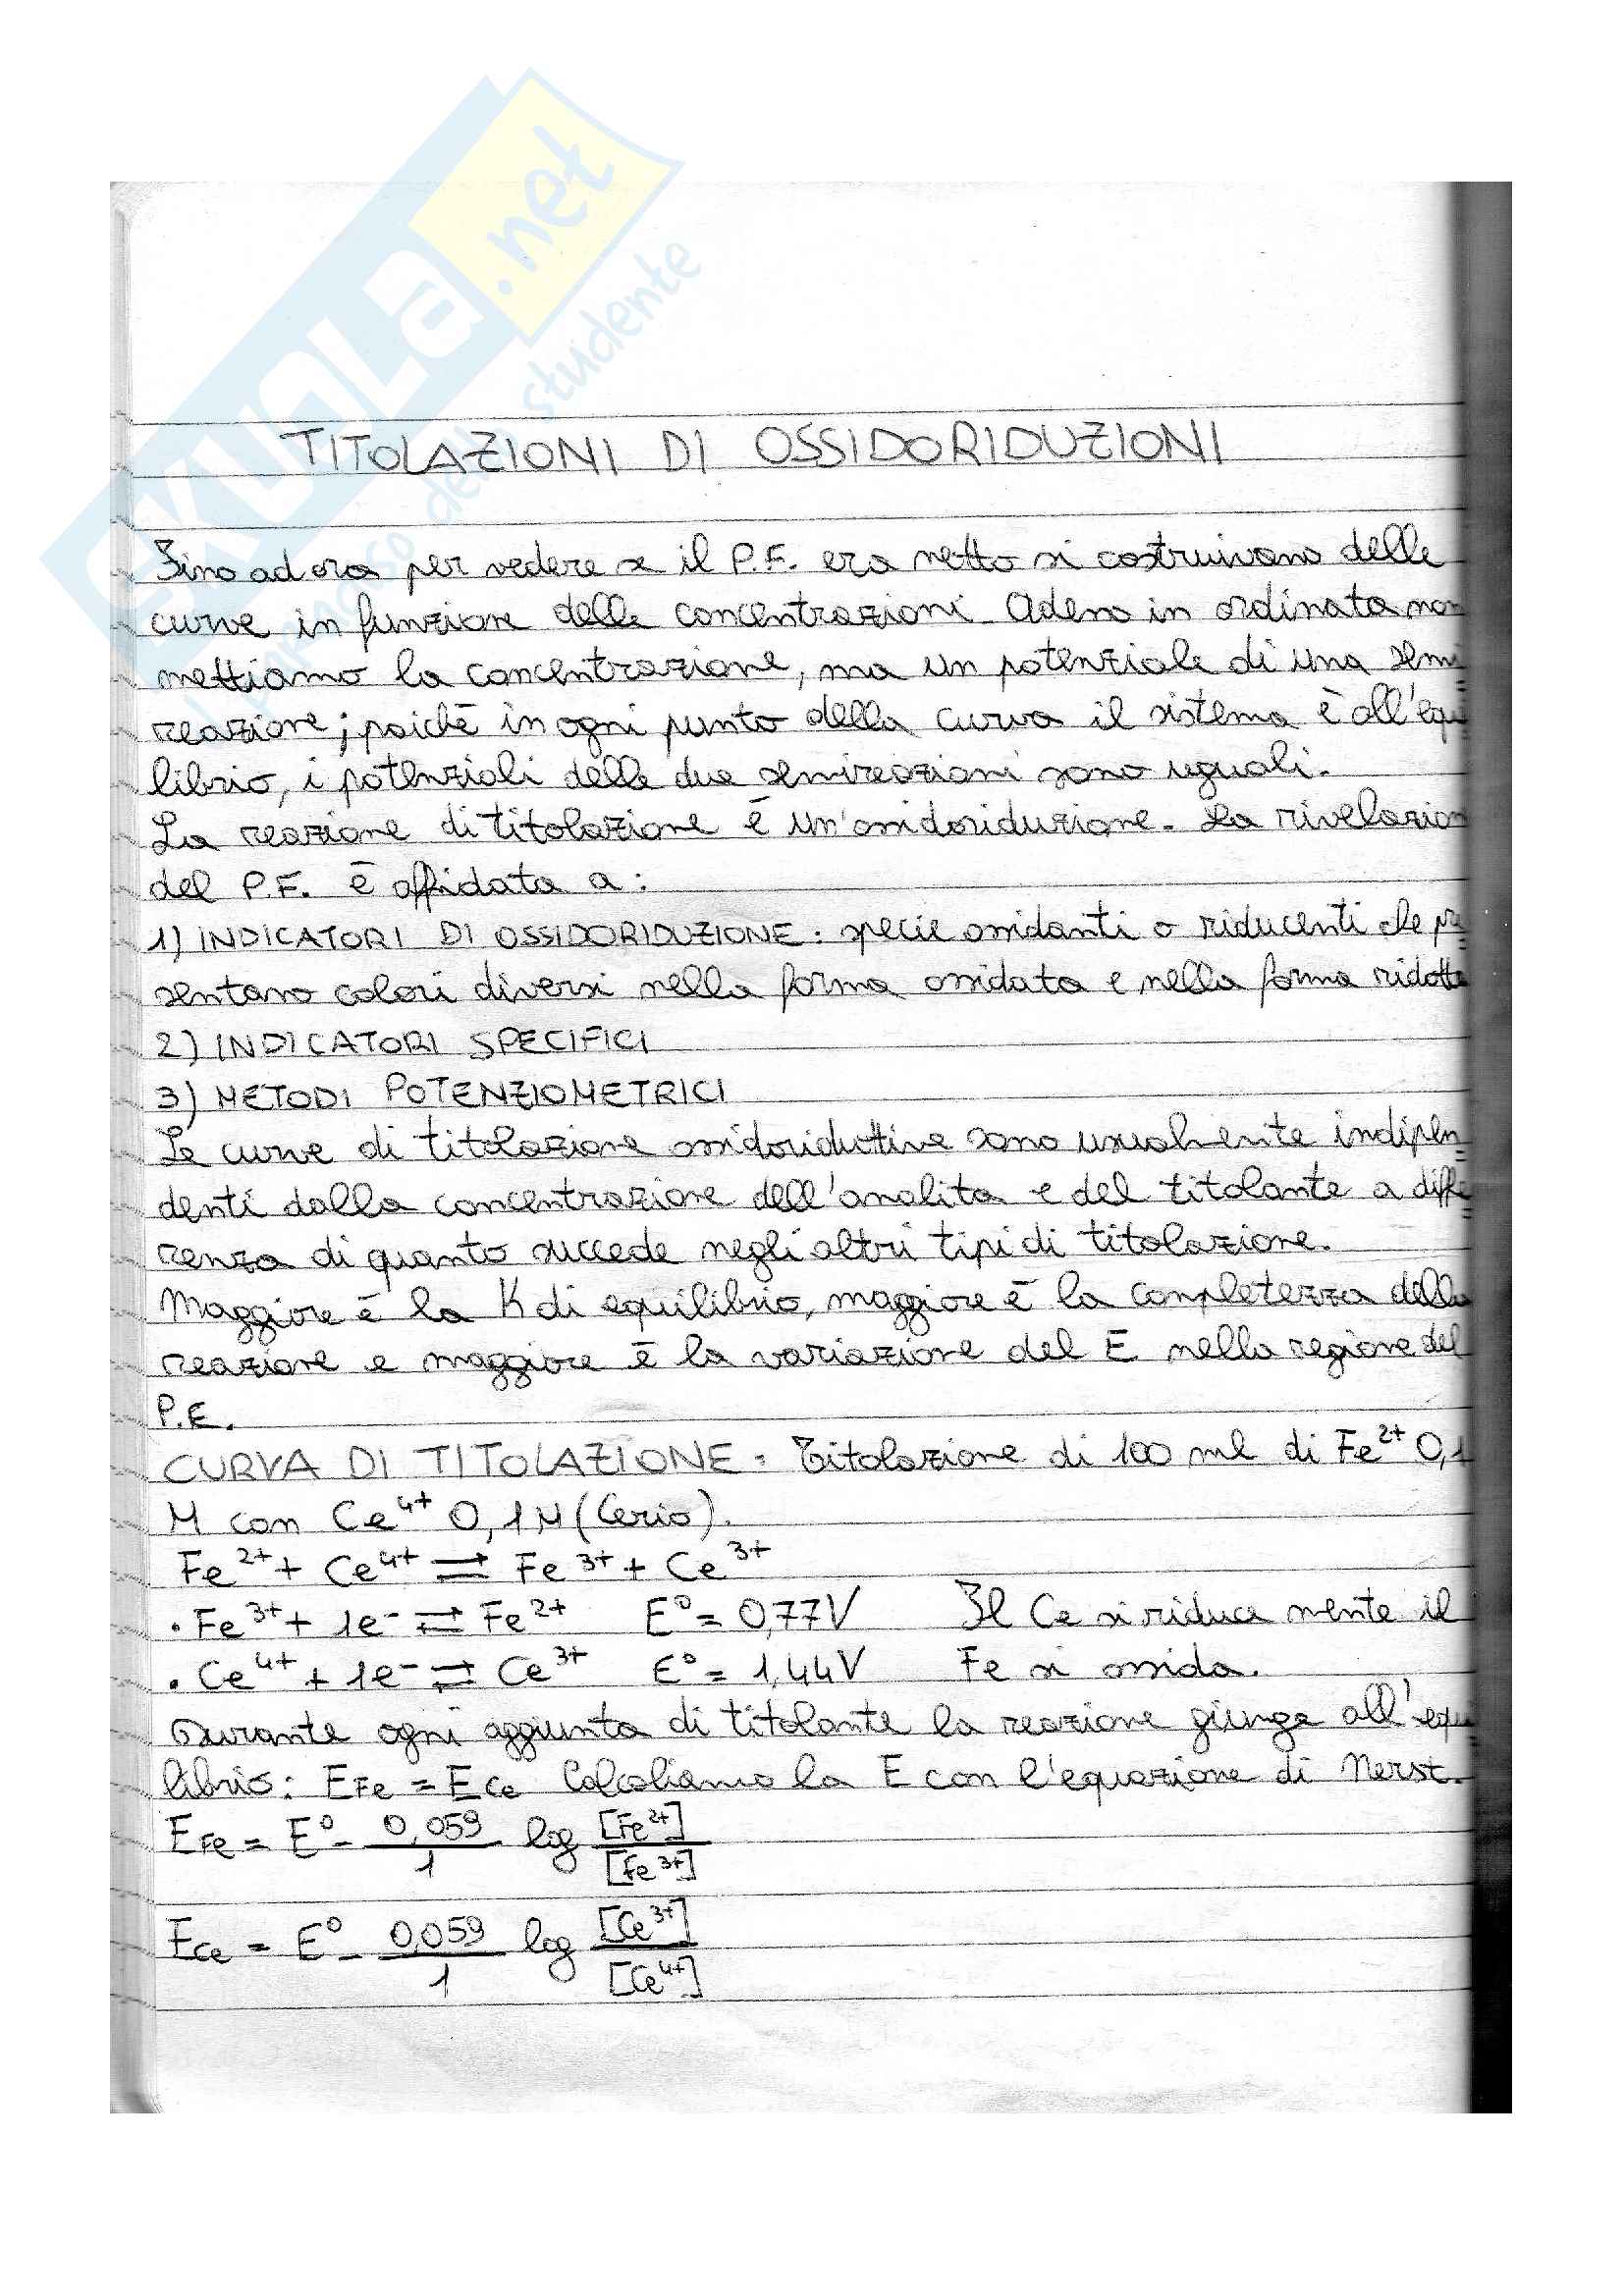 SKUOLA.net
il parco dello studente
TITOLAZIONI DI OSSIDORIDUZIONI
Sino ad ora per vedere se il P.F. era netto si costruivano delle
curve in funzione delle concentrazioni. Adesso in ordinata non
mettiamo la concentrazione, ma un potenziale di una semi
reazione; poichè in ogni punto della curva il sistema è all'equi
librio, i potenziali delle due semireazioni sono uguali.
La reazione di titolazione è un'ossidoriduzione. La rivelazion
del P.F. è affidata a:
1) INDICATORI DI OSSIDORIDUZIONE: specie ossidanti o riducenti che pre
sentano colori diversi nella forma ossidata e nella forma ridotta
2) INDICATORI SPECIFICI
3) METODI POTENZIOMETRICI
Le curve di titolazione ossidoriduttive sono usualmente indipen=
denti dalla concentrazione dell'analita e del titolante a diffe
renza di quanto succede negli altri tipi di titolazione.
Maggiore è la K di equilibrio, maggiore è la completezza della
reazione e maggiore è la variazione del E nella regione del
P.E.
CURVA DI TITOLAZIONE: Titolazione di 100 ml di Fe²⁺ 0,1
M con Ce⁴⁺ 0,1M (Cerio).
Fe²⁺ + Ce⁴⁺ ⇌ Fe³⁺ + Ce³⁺
• Fe³⁺ + 1e⁻ ⇌ Fe²⁺ E⁰ = 0,77V Il Ce si riduce mente il
• Ce⁴⁺ + 1e⁻ ⇌ Ce³⁺ E⁰ = 1,44V Fe si ossida.
Durante ogni aggiunta di titolante la reazione giunge all'equi
librio: EFe = ECe Calcoliamo la E con l'equazione di Nerst.
EFe = E⁰ - 0,059/1 log [Fe²⁺]/[Fe³⁺]
ECe = E⁰ - 0,059/1 log [Ce³⁺]/[Ce⁴⁺]